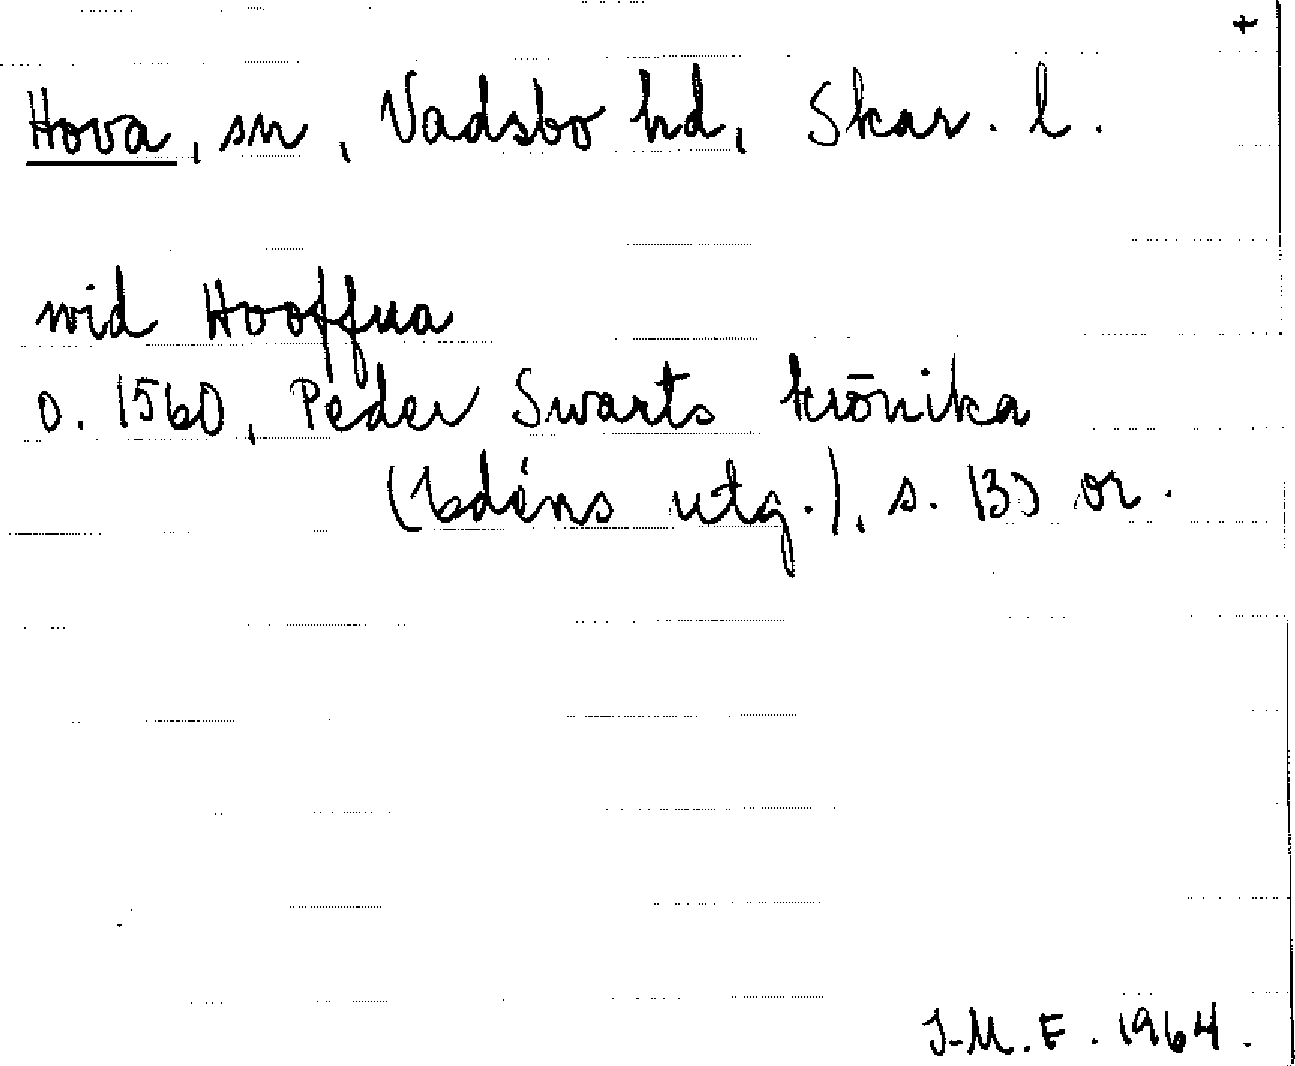 +
Hova, sn, Vadsbo hd, Skar. l.
wid Hooffua
o. 1560, Peder Swarts krönika
(Edéns utg.), s. 133 or.
J-M.E. 1964.